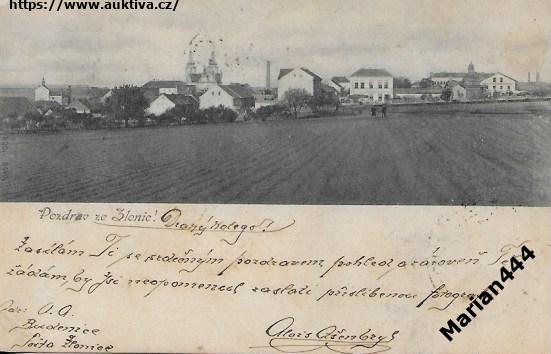 https://www.auktiva.cz/
Pozdrav ze Zlonic! Drahý kolego!
Zasílám Ti se srdečným pozdravem pohled a zároveň Tě
žádám, by jsi neopomenul zaslati přislíbenou fotografii
Marian444
Alois
pošta Zlonice